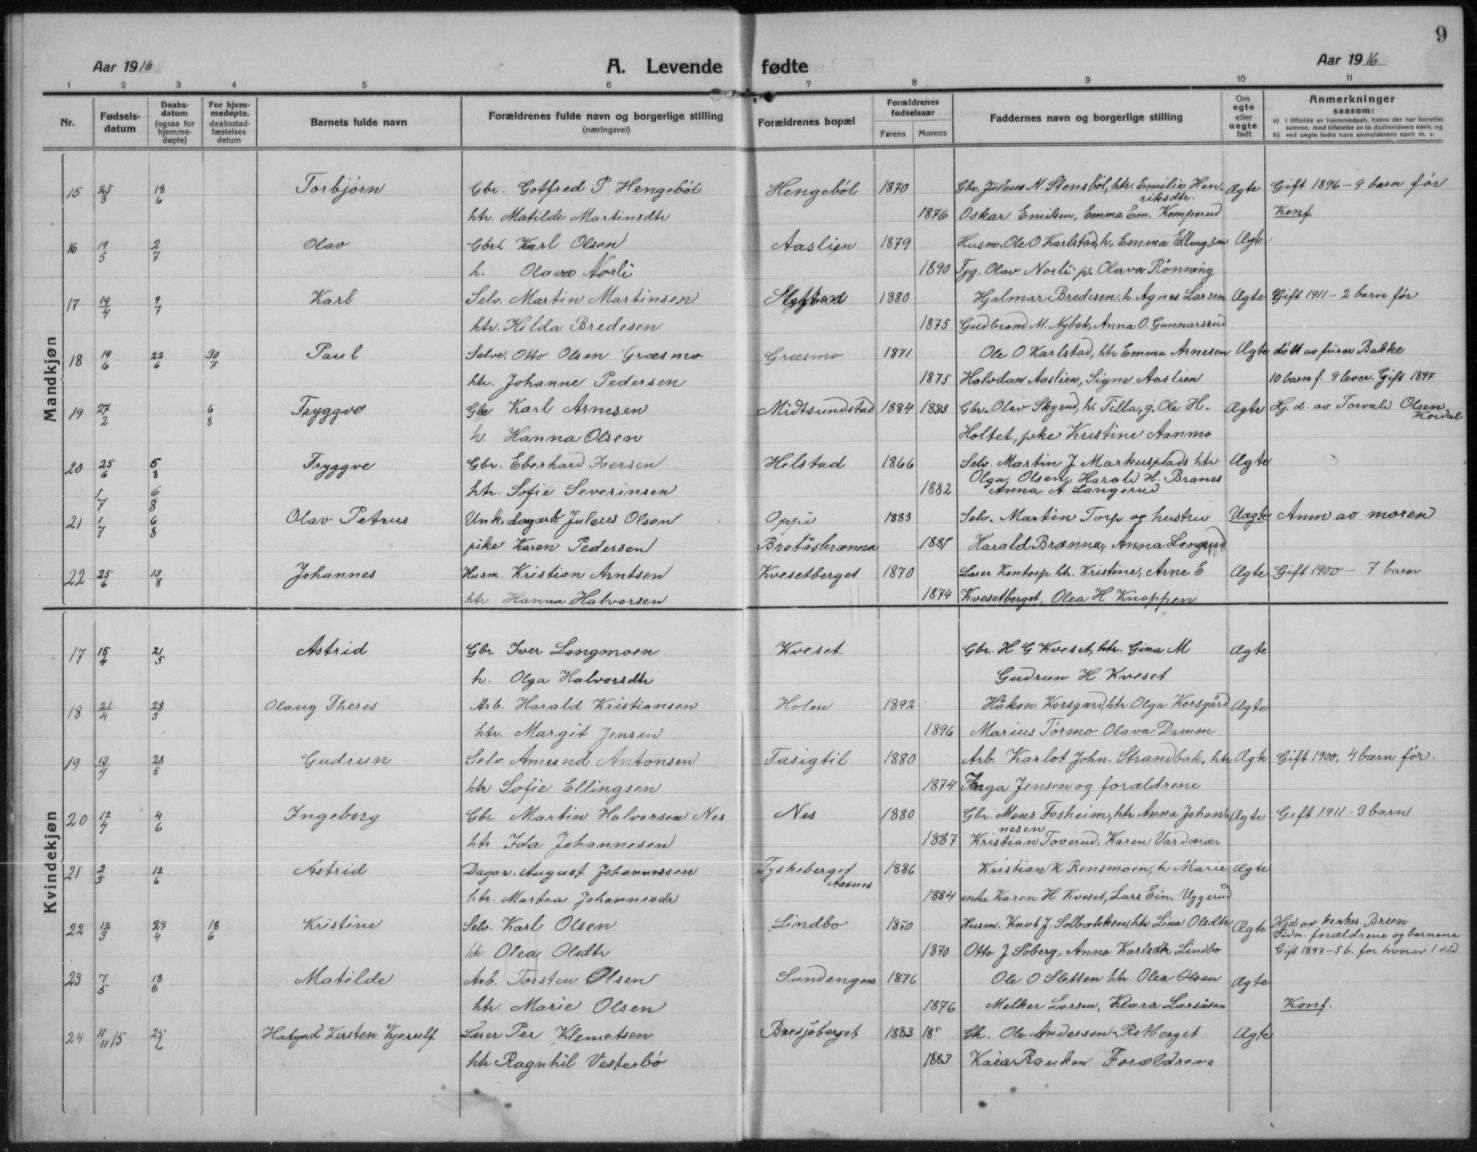 9
Aar 1916 A. Levende fødte Aar 1916
1 2 3 4 5 6 7 8 9 10 11
Nr. Fødsels-datum Daabs-datum (ogsaa for hjemme-døpte) For hjem-medøpte, daabsstad-fæstelses datum Barnets fulde navn Forældrenes fulde navn og borgerlige stilling (næringsvei) Forældrenes bopæl Forældrenes fødselsaar Farens Morens Faddernes navn og borgerlige stilling Om egte eller uegte født Anmerkninger saasom: a) i tilfælde av hjemmedaab, hvem der har forrettet samme, med tilføielse av to daabsvidners navn, og b) ved uegte fødte barn anmelderens navn m. v.
Mandkjøn
15 18/6 Torbjørn Gbr. Gotfred P Hengebøl Hengebøl 1870 Gbr. Julius N. Stensbøl, htr. Emilie Hen- Ægte Gift 1896 – 9 barn før
riksdtr.
htr. Matilde Martinsdtr 1876 Oskar Emilsen, Emma Em. Komperud Konf
16 19/5 2/7 Olav Gbr. Karl Olsen Aaslien 1879 Husm. Ole O Karlstad, h. Emma Ellingsen Ægte
h. Olava Norli 1890 Tjg. Olav Norli p. Olava Rønning
17 19/4 9/7 Karl Selv. Martin Martinsen 1880 Hjalmar Bredesen, h. Agnes Larsen Ægte Gift 1911 – 2 barn før
htr. Hilda Bredesen 1875 Gudbrand M. Nybak, Anna O. Gunnarsrud
18 19/6 22/6 30/7 Paul Selve. Otto Olsen Græsmo Græsmo 1871 Ole O Karlstad, htr Emma Arnesen Ægte døbt av Bakke
htr. Johanne Pedersen 1875 Halvdan Aaslien, Signe Aaslien 10 barn f. 9 lever. Gift 1897
19 27/2 6/8 Tryggve Gbr Karl Arnesen Midtsundstad 1884 1883 Gbr. Olav Skyrud, h. Tilla, g. Ole H. Ægte Hj. d. av Torvald Olsen
Kordal
h. Hanna Olsen Holtet, pike Kristine Aanmo
20 25/6 6/8 Tryggve Gbr. Eberhard Iversen Helstad 1866 Selv. Martin J Markusplads htr. Ægte
Olga Olsen, Harald H. Branes
htr. Sofie Severinsen 1882 Anna A Langerud
1/7 6/8
21 1/7 6/8 Olav Petrus Unk. dagarb. Julius Olsen Oppi 1883 Selv. Martin Torp og hustru Uægte Anm av moren
pike Karen Pedersen Bråtåsbrænna 1881 Harald Brænna, Anna Langrud
22 25/6 13/8 Johannes Husm. Kristian Arntsen Kvesetberget 1870 Lærer Kontorp htr. Kristine, Arne E Ægte Gift 1900 – 7 barn
htr Hanna Halvorsen 1874 Kvesetberget, Olea H Knappen
Kvindekjøn
17 15/4 21/5 Astrid Gbr Iver Langmoen Kveset Gbr. H G Kveset, htr. Gina M Ægte
h. Olga Halvorsdtr Gudrun H Kveset
18 21/4 28/5 Olaug Theres Arb. Harald Kristiansen Holen 1892 Håkon Korsgård, htr Olga Korsgård Ægte
htr. Margit Jensen 1896 Marius Tørmo Olava Damm
19 13/4 28/5 Gudrun Selv. Amund Antonsen Tasigtil 1880 Arb. Karlot John. Strandbak, htr Ægte Gift 1900, 4 barn før.
htr Sofie Ellingsen 1874 Inga Jensen og forældrene
20 12/4 4/6 Ingeborg Gbr Martin Halvorsen Nes Nes 1880 Gbr. Mons Fosheim, htr Anna Johan- Ægte Gift 1911 – 3 barn
nesen
htr Ida Johannesen 1887 Kristian Toverud, Karen Vardenær
21 2/5 12/6 Astrid Dagar. August Johannessen Tyskeberget 1886 Kristian K Rensmoen, h Marie Ægte
Aasnes
htr. Martea Johannesdr 1884 enke Karen H Kveset, Lars Ein. Uggerud
22 12/3 24/4 18/6 Kristine Selv. Karl Olsen Lindbo 1850 Husm. Knut J. Solbakken, htr Lina Olsdtr Ægte Hjd av Breen
Vidn. forældrene og barnene
htr Olea Olsdtr 1870 Otto J Søberg, Anna Karlsdtr Lindbo Gift 1897 – 5 b. før hvorav 1 død
23 7/5 18/6 Matilde Arb. Torsten Olsen Sundengen 1876 Ole O Sletten htr. Olea Olsen Ægte
htr. Marie Olsen 1876 Melker Larsen, Klara Larsåsen Konf.
24 11/11 15 25/6 Kirsten Kjerulf Lærer Per Klemetsen Bresjøberget 1883 18 Gk. Ole Andersen Rotberget Ægte
htr Ragnhil Vesterbø 1883 Kaia Rauken Forældrene